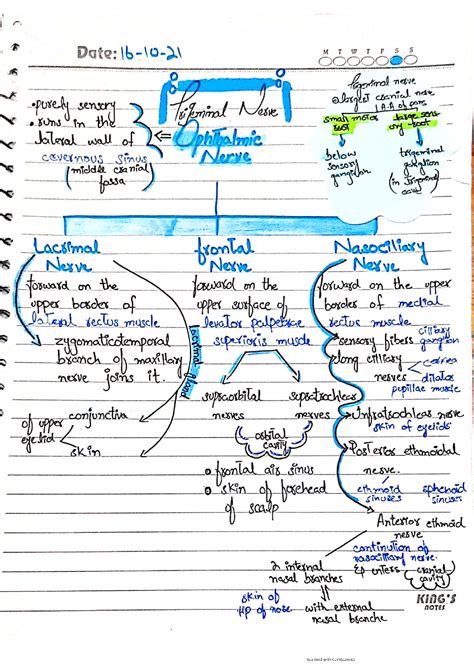 Date: 16-10-21
M T W T F S S
Trigeminal Nerve
Ophthalmic
Nerve
•purely sensory
•runs in the
lateral wall of
cavernous sinus
(middle cranial
fossa)
Trigeminal nerve
largest cranial nerve
small motor
root
large sens-
ory root
below
sensory
ganglion
trigeminal
ganglion
(in trigeminal
cave)
Lacrimal
Nerve
forward on the
upper border of
lateral rectus muscle
zygomaticotemporal
branch of maxillary
nerve joins it.
Lacrimal gland
of upper
eyelid
conjunctiva
skin
frontal
Nerve
forward on the
upper surface of
levator palpebrae
superioris muscle
supraorbital
nerves
supratrochlear
nerves
orbital
cavity
frontal air sinus
skin of forehead
of scalp
Nasociliary
Nerve
forward on the upper
border of medial
rectus muscle
sensory fibers
ciliary
ganglion
long cilliary
nerves
cornea
dilator
pupillae muscle
Infratrochlear nerve
skin of eyelids
Posterior ethmoidal
nerve.
ethmoid
sinuses
sphenoid
sinuses
Anterior ethmoid
nerve
continution of
nasociliary nerve.
& enters cranial
cavity
2 internal
nasal branches
skin of
tip of nose
with external
nasal branche
KING'S
NOTES
Scanned with CamScanner